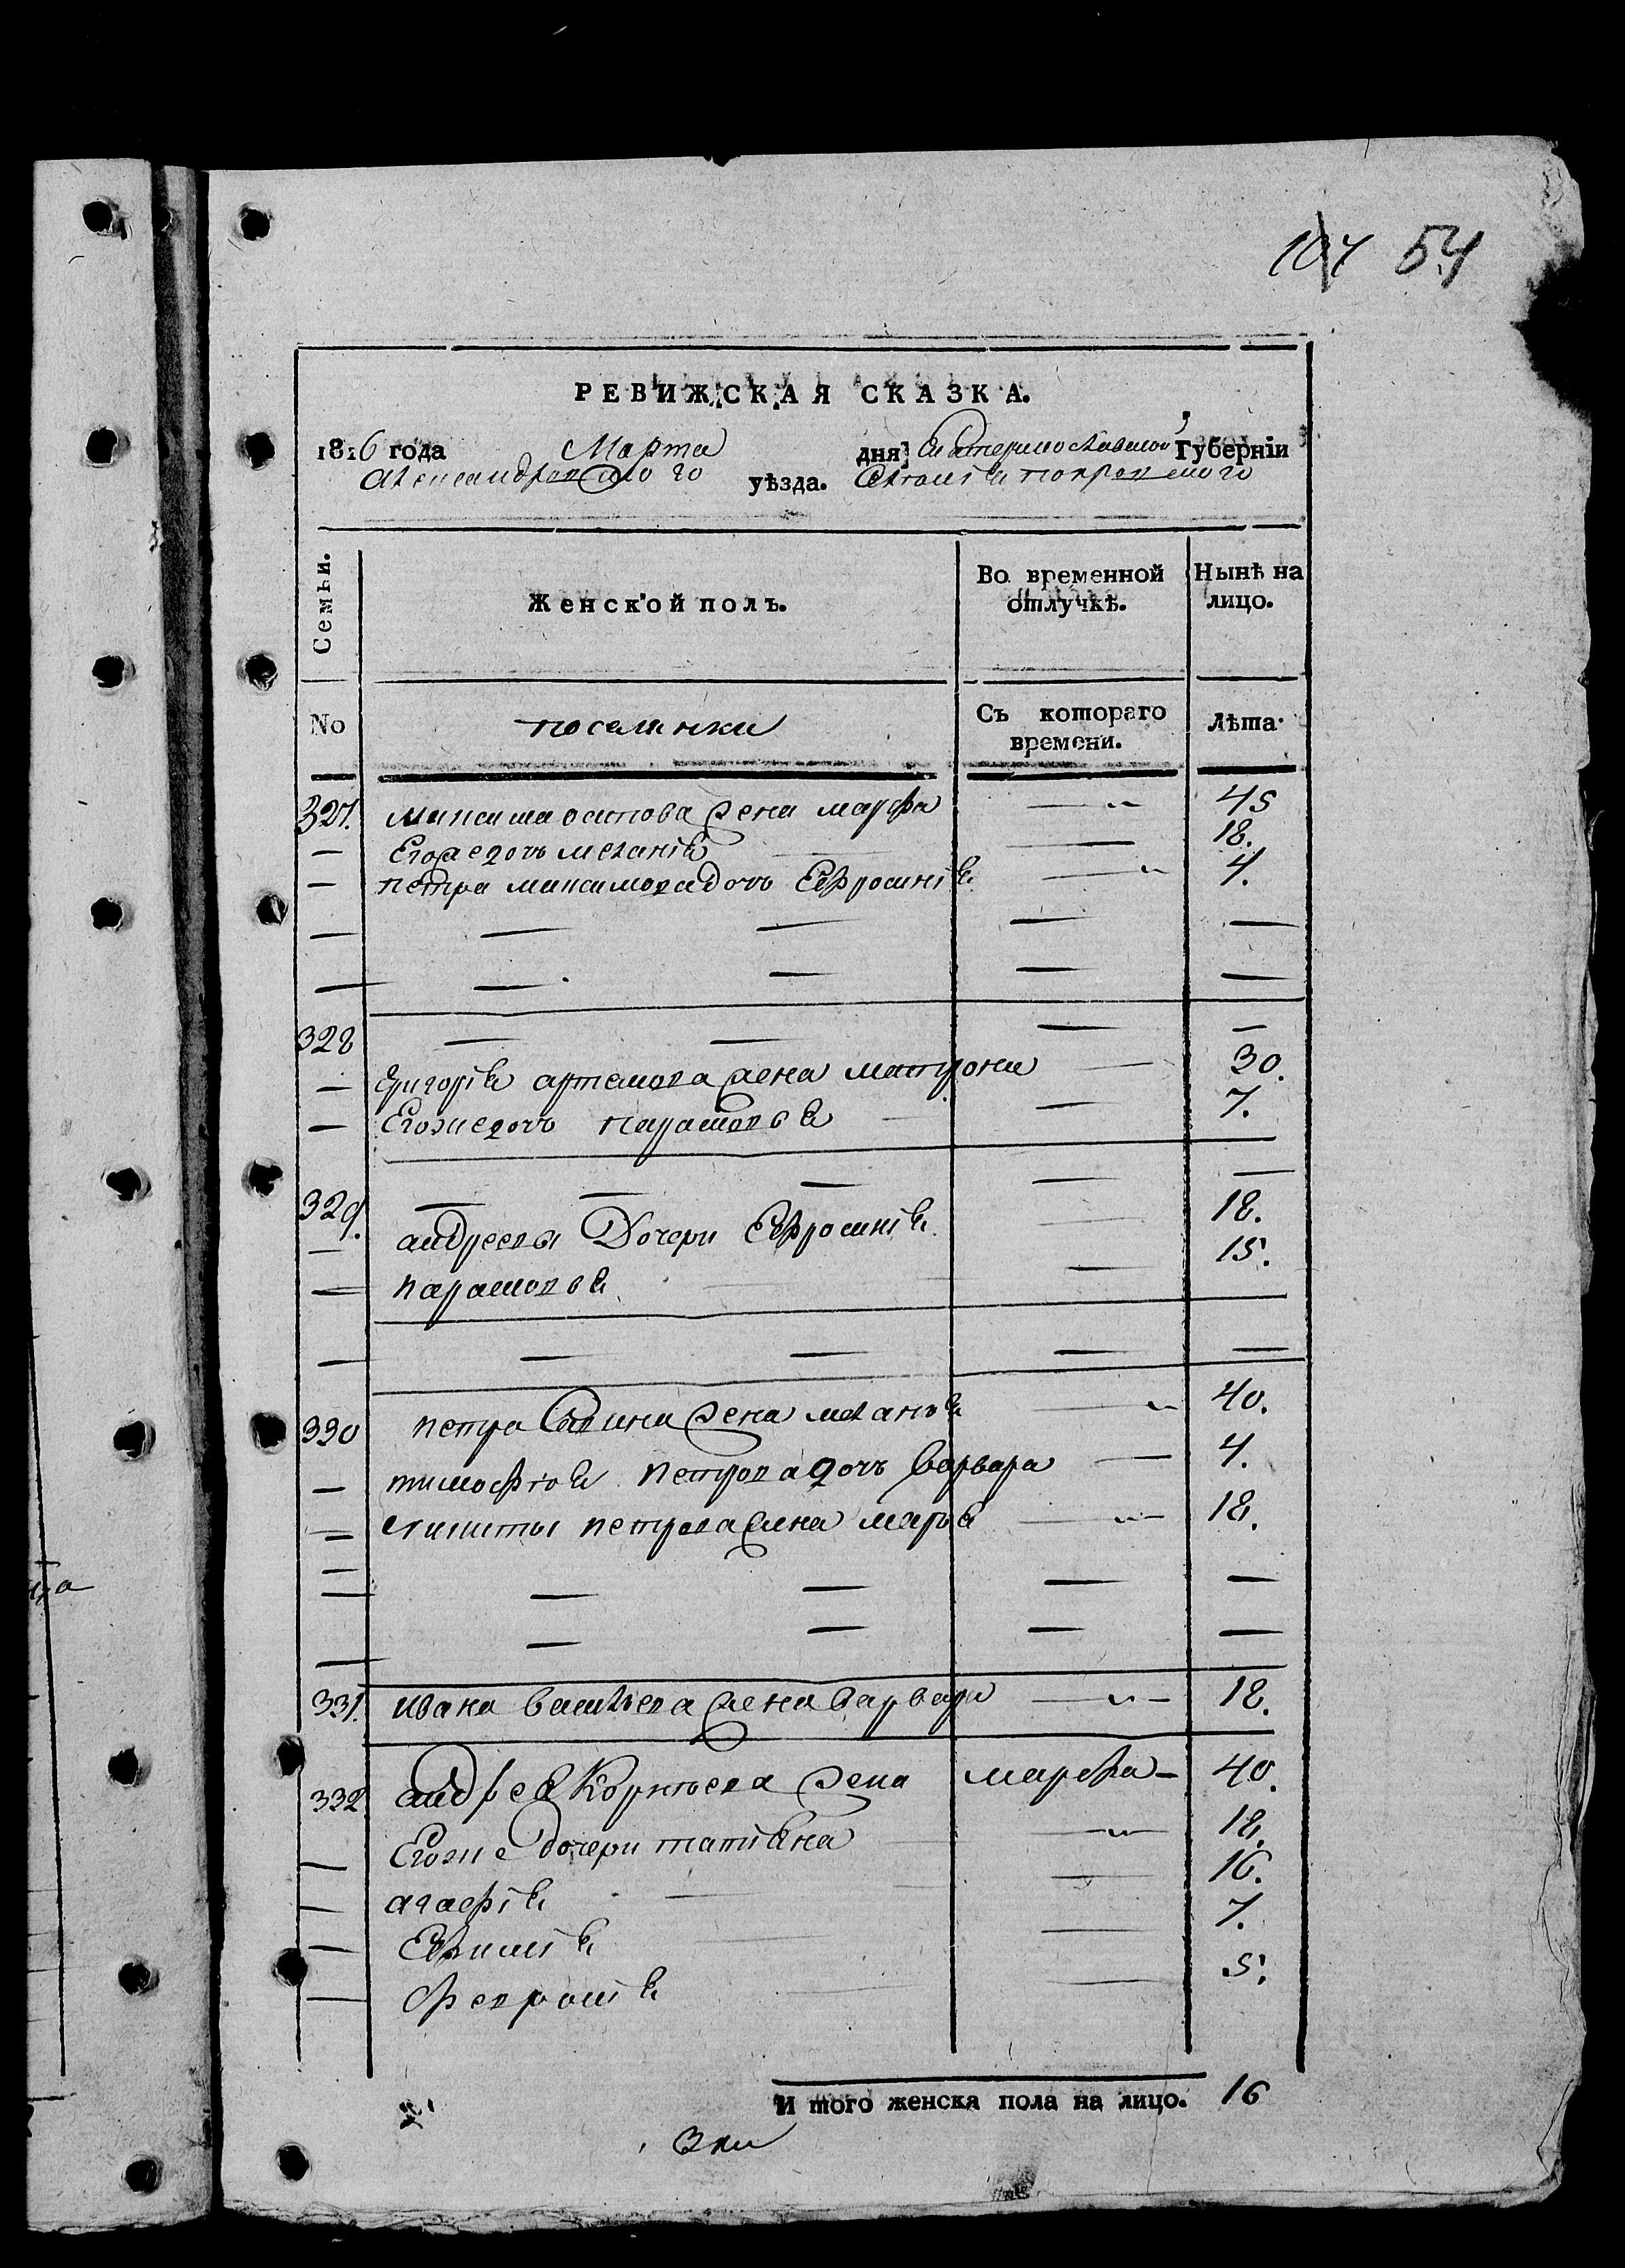 107 54
РЕВИЖСКАЯ СКАЗКА.
1816 года Марта дня Екатеринославской Губерніи
Александровского уѣзда. Села покровского
Семьи. Женской полъ. Во временной отлучкѣ. Нынѣ на лицо.
No поселянки Съ котораго времени. Лѣта.
327. максима осипова жена марфа — „ 45
— Егожедочь меланія — 18.
— петра максимовадочь Ефросинія — „ 4.
— — — — —
— — — — —
328 — — — —
— григорія артемова жена матрона — 30.
— Егожедочь парасковія — 7.
329. — — — — —
— андреевы Дочери Ефросинія — 18.
— парасковія — 15.
— — — — —
330 петра Савина жена меланья — „ 40.
— тимофея петровадочь варвара — 4.
— никиты петроважена марья — „ — 18.
— — — — —
— — — — —
331. ивана васильева жена варвара — „ — 18.
332. андрея Корнеева жена марфа — 40.
— Егоже дочери татіяна — „ — 18.
— агафія — 16.
— Ефимія — 7.
— февронія — 5.
И того женска пола на лицо. 16